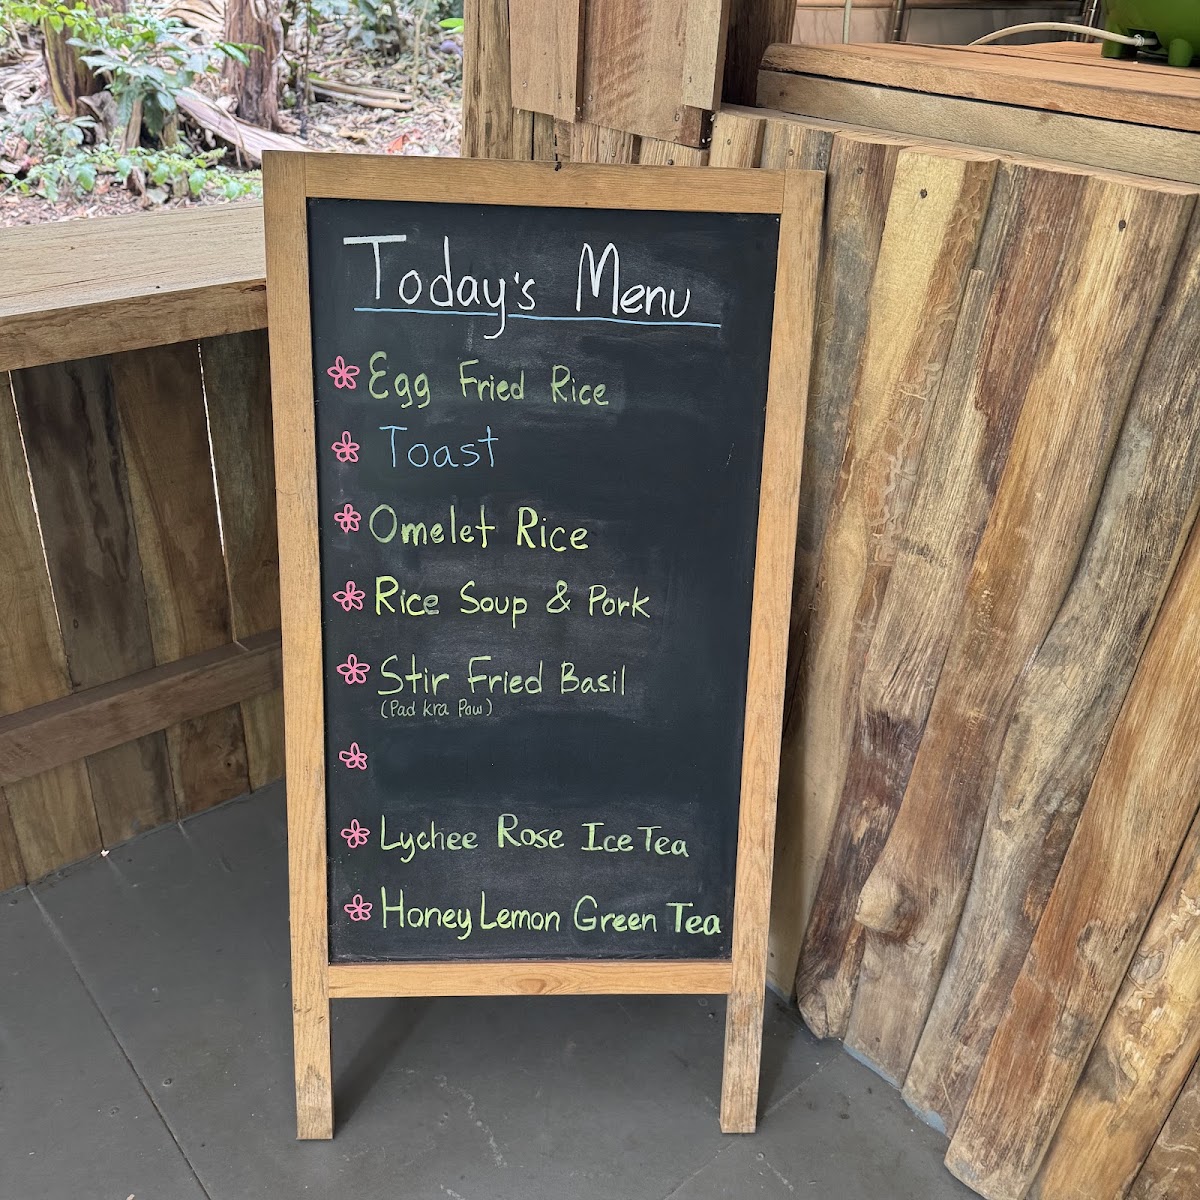 Today's Menu
Egg Fried Rice
Toast
Omelet Rice
Rice Soup & Pork
Stir Fried Basil
(Pad Kra Pow)
Lychee Rose Ice Tea
Honey Lemon Green Tea